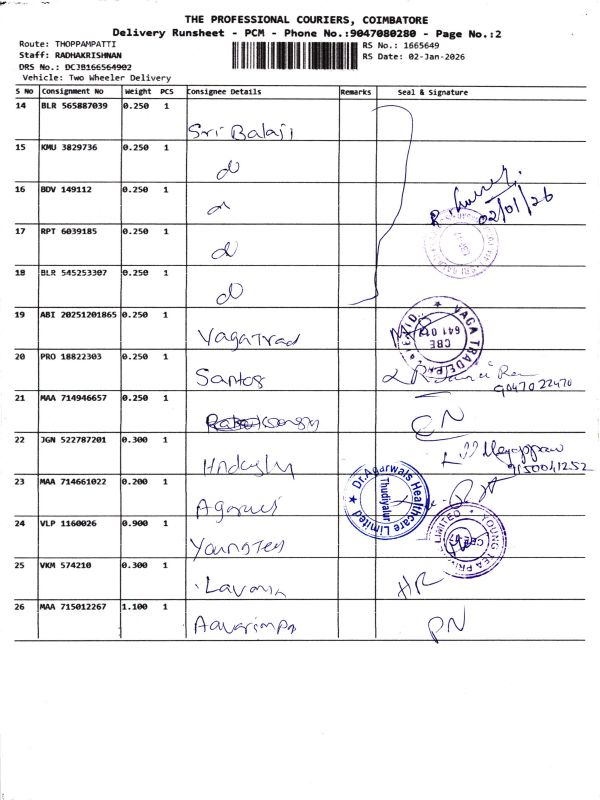 THE PROFESSIONAL COURIERS, COIMBATORE
Delivery Runsheet - PCM - Phone No.:9047080280 - Page No.:2
Route: THOPPAMPATTI
RS No.: 1665649
Staff: RADHAKRISHNAN
RS Date: 02-Jan-2026
DRS No.: DCJB166564902
Vehicle: Two Wheeler Delivery
S No Consignment No Weight PCS Consignee Details Remarks Seal & Signature
14 BLR 565887039 0.250 1 Sri Balaji
15 KMU 3829736 0.250 1
16 BDV 149112 0.250 1
02/01/26
17 RPT 6039185 0.250 1
18 BLR 545253307 0.250 1
19 ABI 20251201865 0.250 1 Yaga Trad
YAGA TRADE
CBE
641 012
20 PRO 18822303 0.250 1 Santos
9047022470
21 MAA 714946657 0.250 1
22 JGN 522787201 0.300 1
9150041252
23 MAA 714661022 0.200 1
Dr.Agarwals Healthcare Limited
Thudiyalur
24 VLP 1160026 0.900 1 Young Tea
YOUNG TEA PRIVATE LIMITED
25 VKM 574210 0.300 1 Lavanya HR
26 MAA 715012267 1.100 1 Aavarimpa PN